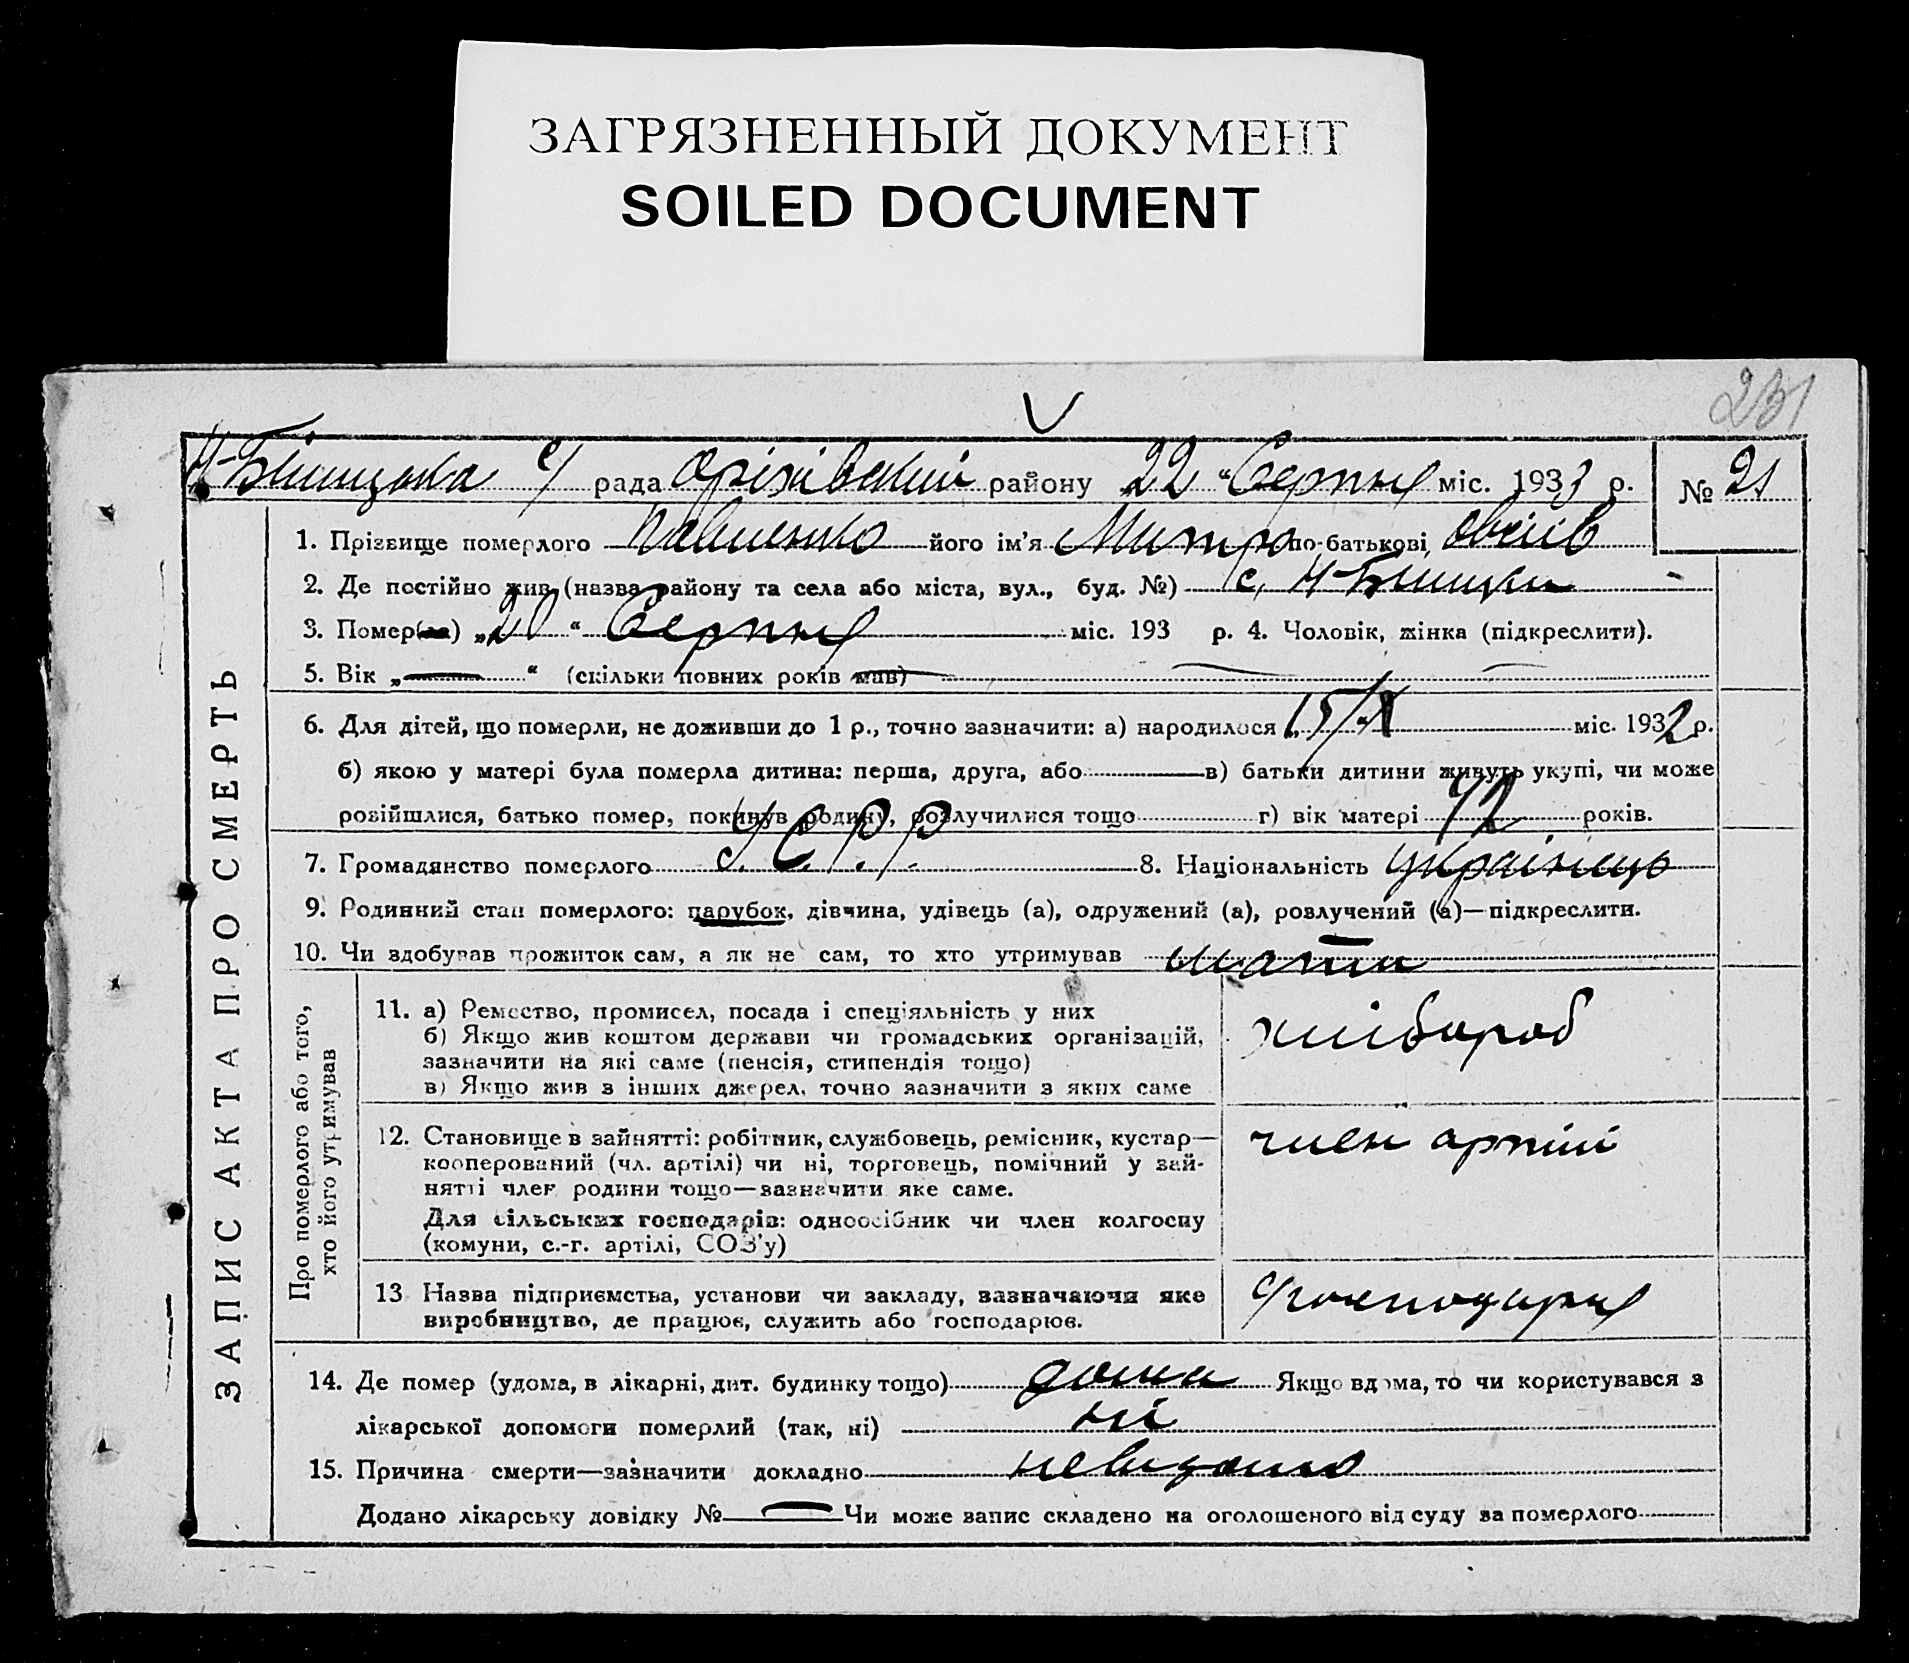 ЗАГРЯЗНЕННЫЙ ДОКУМЕНТ
SOILED DOCUMENT
231
Н-Білицька с/ рада Оріхівський району 22 "Серпня міс. 1933 р. № 21
ЗАПИС АКТА ПРО СМЕРТЬ
1. Прізвище померлого Павленко його ім'я Митро по-батькові
2. Де постійно жив (назва району та села або міста, вул., буд. №) с. Н-Білицьки
3. Помер(ла) „20" Серпня міс. 193 р. 4. Чоловік, жінка (підкреслити).
5. Вік „ " (скільки повних років мав)
6. Для дітей, що померли, не доживши до 1 р., точно зазначити: а) народилося „15/X міс. 1932 р.
б) якою у матері була померла дитина: перша, друга, або в) батьки дитини живуть укупі, чи може
розійшлися, батько помер, покинув родину, розлучилися тощо г) вік матері 42 років.
7. Громадянство померлого У.С.Р.Р. 8. Національність українець
9. Родинний стан померлого: парубок, дівчина, удівець (а), одружений (а), розлучений (а)—підкреслити.
10. Чи здобував прожиток сам, а як не сам, то хто утримував мати
Про померлого або того,
хто його утримував
11. а) Ремество, промисел, посада і спеціяльність у них
б) Якщо жив коштом держави чи громадських організацій,
зазначити на які саме (пенсія, стипендія тощо)
в) Якщо жив з інших джерел, точно зазначити з яких саме
хлібороб
12. Становище в зайнятті: робітник, службовець, ремісник, кустар—
кооперований (чл. артілі) чи ні, торговець, помічний у зай-
нятті член родини тощо—зазначити яке саме.
Для сільських господарів: одноосібник чи член колгоспу
(комуни, с.-г. артілі, СОЗ'у)
член артілі
13 Назва підприємства, установи чи закладу, зазначаючи яке
виробництво, де працює, служить або господарює.
14. Де помер (удома, в лікарні, дит. будинку тощо) дома Якщо вдома, то чи користувався з
лікарської допомоги померлий (так, ні) ні
15. Причина смерти—зазначити докладно невидомо
Додано лікарську довідку № — Чи може запис складено на оголошеного від суду за померлого